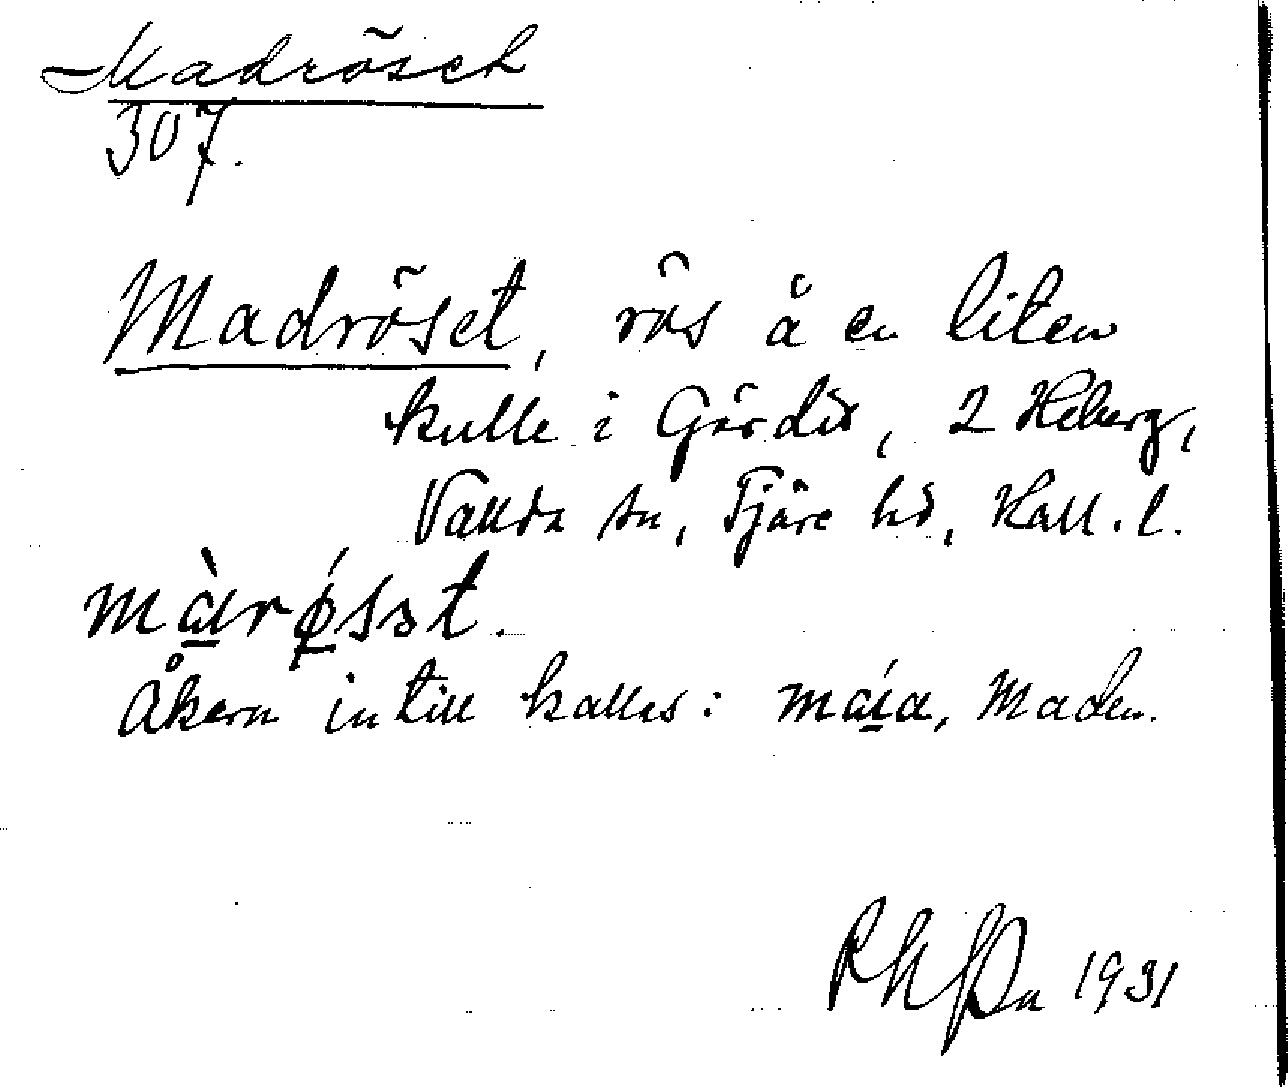 Madröset
307.
Madröset, rös å en liten
kulle i Gärdet, 2 Heberg,
Vallda sn, Fjäre hd, Hall. l.
màrǿsət.
Åkern intill kallas: maia, Maden.
1931